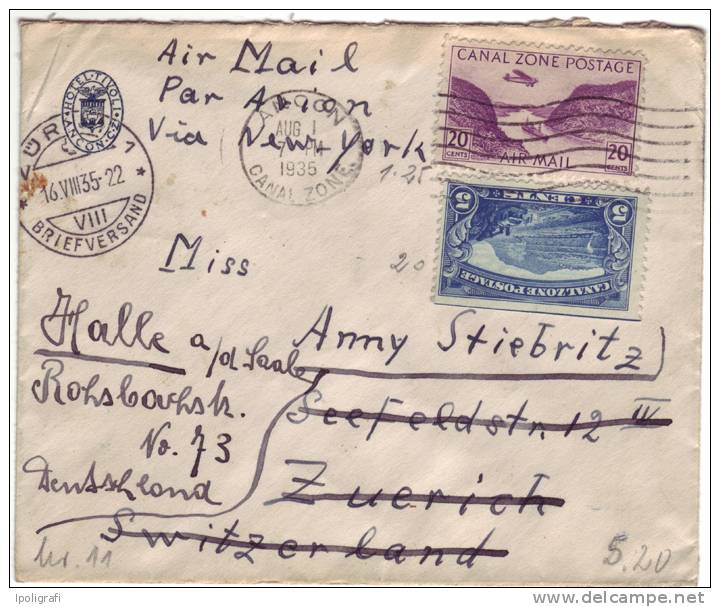 Air Mail
Par Avion
Via New-York
HOTEL·TIVOLI
ANCON, C.Z.
ANCON
AUG 1
1935
CANAL ZONE
CANAL ZONE POSTAGE
20 CENTS
AIR MAIL
20 CENTS
1.25
ZÜRICH 1
16.VIII.35-22
VIII
BRIEFVERSAND
5 CENTS 5
CANAL ZONE POSTAGE
20
Miss
Anny Stiebritz
Seefeldstr. 12 IV
Zuerich
Switzerland
Halle a/d. Saale
Rohsbachstr.
No. 73
Deutschland
Nr. 11
5.20
Ipoligrafi
delcampe.net